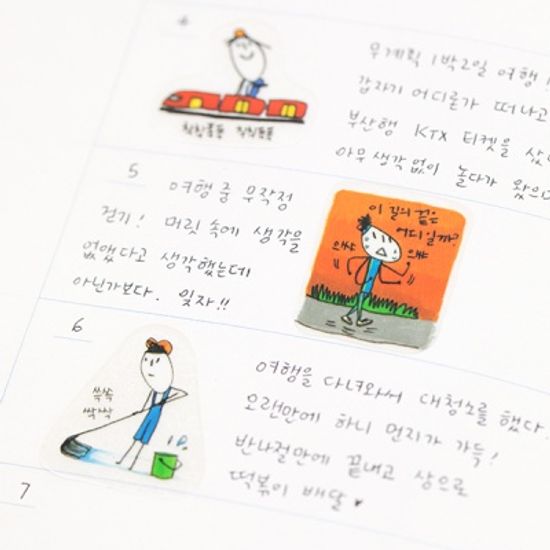 4
무계획 1박2일 여행!
갑자기 어디론가 떠나고
부산행 KTX 티켓을
아무 생각 없이 놀다가
칙칙폭폭 칙칙폭폭
5
여행 중 무작정
걷기! 머릿 속에 생각을
없앴다고 생각했는데
아닌가보다. 잊자!!
이 길의 끝은
어디일까?
으쌰
으쌰
6
쓱쓱
싹싹
여행을 다녀와서 대청소를 했다.
오랜만에 하니 먼지가 가득!
반나절만에 끝내고 상으로
떡볶이 배달
7